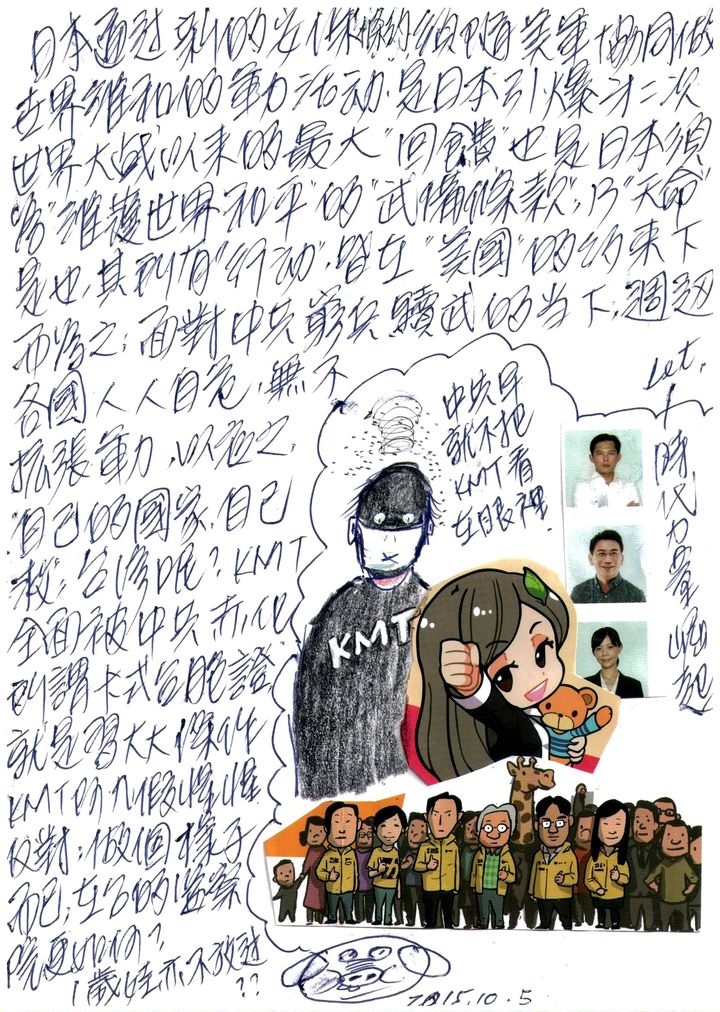 日本通过新的安保條約須隨美軍協同做
世界維和的軍力活动.是日本引爆才二次
世界大战以来的最大"回饋"也是日本須
為"維護世界和平"的"武備條款",乃"天命"
是也,其所有"行动".皆在"美國"的約束下
而為之;面對中共窮兵黷武的当下,週边
各國人人自危,無不
拡張軍力,以
自己的國家,自己
救;台湾呢?KMT
全面被中共赤化
所謂卡式台胞證
就是習大大傑作
KMT的假惺惺
反對;做個樣子
而已;在的監察
院更如何?
1歲娃亦不放过
??
中共早
就不把
KMT看
在眼裡.
KMT
Let,
時代力量崛起
2015.10.5